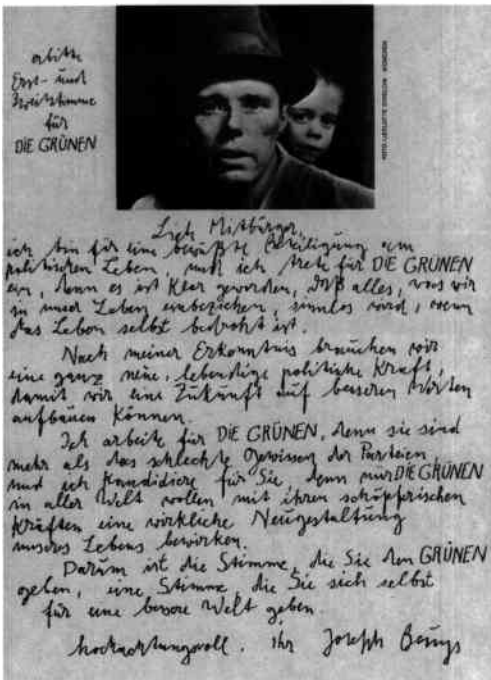 erbitte
Erst- und
Zweitstimme
für
DIE GRÜNEN
Liebe Mitbürger,
ich bin für eine bewußte Beteiligung am
politischen Leben, und ich trete für DIE GRÜNEN
ein, denn es ist klar geworden, daß alles, was wir
in unser Leben einbeziehen, sinnlos wird, wenn
das Leben selbst bedroht ist.
Nach meiner Erkenntnis brauchen wir
eine ganz neue, lebendige politische Kraft,
damit wir eine Zukunft auf besseren Werten
aufbauen können.
Ich arbeite für DIE GRÜNEN, denn sie sind
mehr als das schlechte Gewissen der Parteien,
und ich kandidiere für Sie, denn nur DIE GRÜNEN
in aller Welt wollen mit ihren schöpferischen
Kräften eine wirkliche Neugestaltung
unseres Lebens bewirken.
Darum ist die Stimme, die Sie den GRÜNEN
geben, eine Stimme, die Sie sich selbst
für eine bessere Welt geben.
hochachtungsvoll. Ihr Joseph Beuys